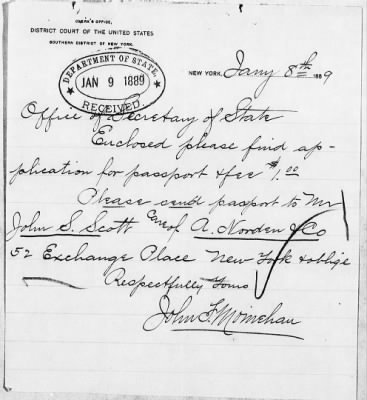 CLERK'S OFFICE,
DISTRICT COURT OF THE UNITED STATES
SOUTHERN DISTRICT OF NEW YORK.
DEPARTMENT OF STATE,
JAN 9 1889
RECEIVED.
NEW YORK, Jany 8th 1889
Office of Secretary of State
Enclosed please find ap-
plication for passport & fee $1.00
Please send pasport to Mr
John S. Scott care of A. Norden & Co
52 Exchange Place New York & oblige
Respectfully Yours
John F. Moinehan